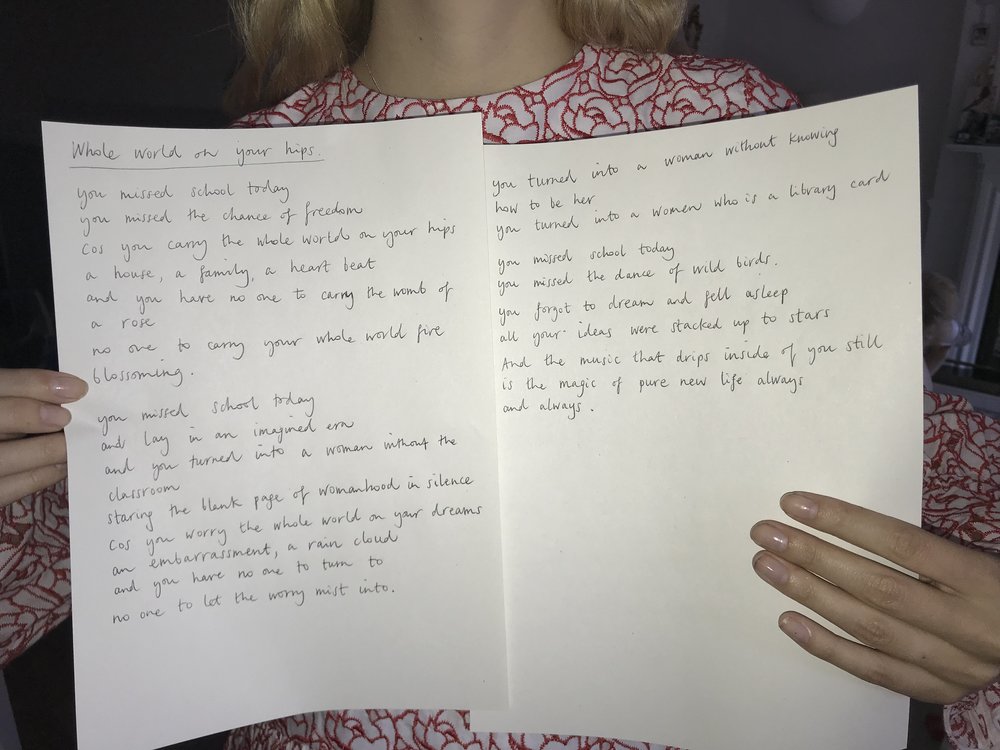 Whole world on your hips.
you missed school today
you missed the chance of freedom
Cos you carry the whole world on your hips
a house, a family, a heart beat
and you have no one to carry the womb of
a rose
no one to carry your whole world fire
blossoming.
you missed school today
and lay in an imagined era
and you turned into a woman without the
classroom
staring the blank page of womanhood in silence
Cos you worry the whole world on your dreams
an embarrassment, a rain cloud
and you have no one to turn to
no one to let the worry mist into.
you turned into a woman without knowing
how to be her
you turned into a women who is a library card
you missed school today
you missed the dance of wild birds.
you forgot to dream and fell asleep
all your ideas were stacked up to stars
And the music that drips inside of you still
is the magic of pure new life always
and always.